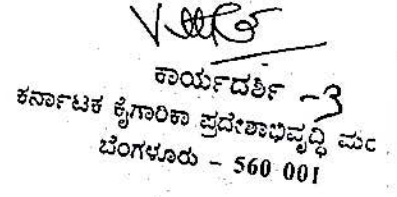 ಕಾರ್ಯದರ್ಶಿ -3
ಕರ್ನಾಟಕ ಕೈಗಾರಿಕಾ ಪ್ರದೇಶಾಭಿವೃದ್ಧಿ ಮಂ
ಬೆಂಗಳೂರು - 560 001